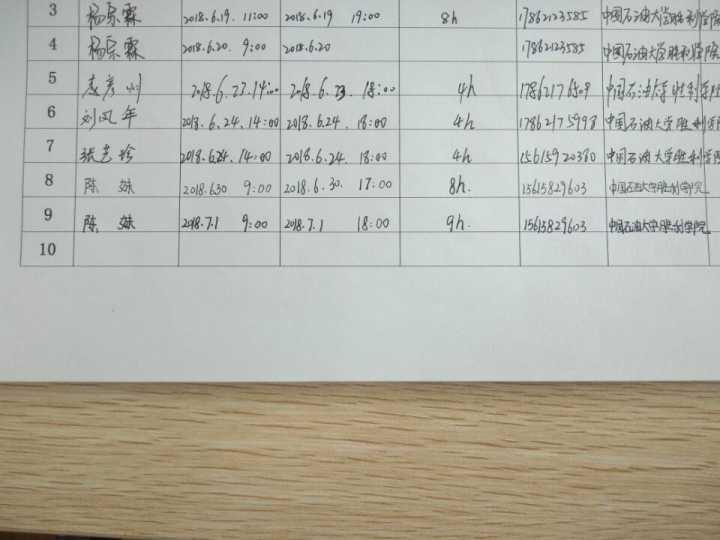 3 杨宗霖 2018.6.19. 11:00 2018.6.19 19:00 8h 17862123585 中国石油大学胜利学院
4 杨宗霖 2018.6.20. 9:00 2018.6.20 17862123585 中国石油大学胜利学院
5 2018.6.23.14:00 2018.6.23. 18:00 4h 17862176509 中国石油大学胜利学院
6 刘风年 2018.6.24.14:00 2018.6.24. 18:00 4h 17862175998 中国石油大学胜利学院
7 张艺珍 2018.6.24.14:00 2018.6.24. 18:00 4h 15615920380 中国石油大学胜利学院
8 陈妹 2018.6.30 9:00 2018.6.30. 17:00 8h. 15615829603 中国石油大学胜利学院
9 陈妹 2018.7.1 9:00 2018.7.1 18:00 9h. 15615829603 中国石油大学胜利学院
10